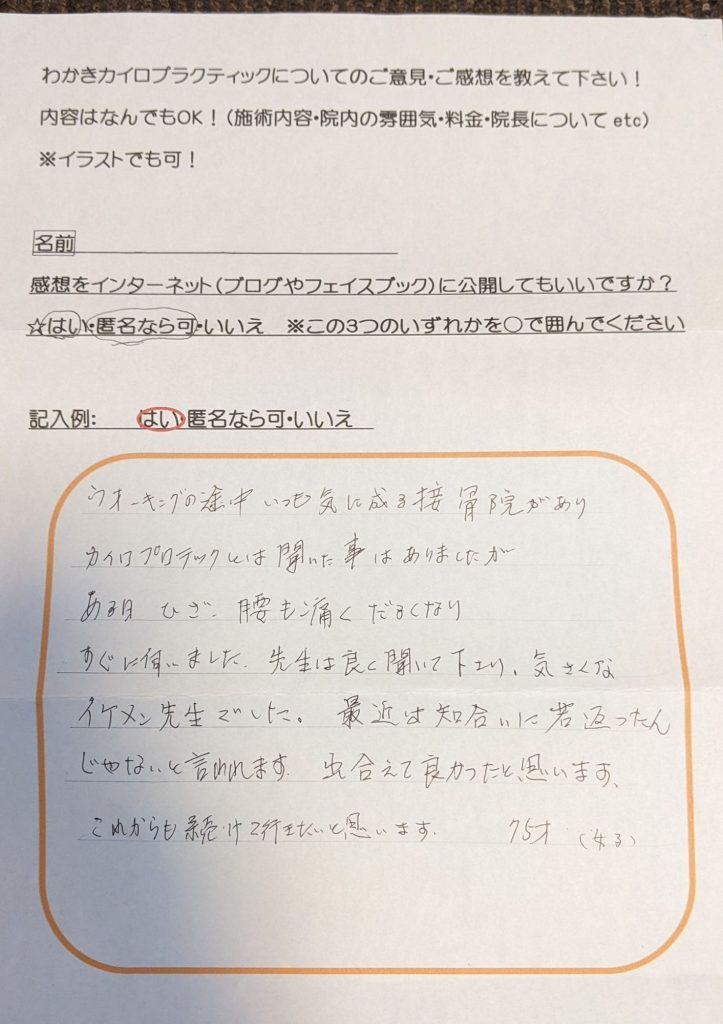 わかきカイロプラクティックについてのご意見・ご感想を教えて下さい！
内容はなんでもOK！（施術内容・院内の雰囲気・料金・院長について etc）
※イラストでも可！
名前
感想をインターネット（ブログやフェイスブック）に公開してもいいですか？
☆はい・匿名なら可・いいえ　※この3つのいずれかを〇で囲んでください
記入例：　はい・匿名なら可・いいえ
ウオーキングの途中いつも気に成る接骨院があり
カイロプロテックとは聞いた事はありましたが
ある日 ひざ、腰も痛くだるくなり
すぐに伺いました。先生は良く聞いて下さり、気さくな
イケメン先生でした。最近は知合いに若返ったん
じゃないと言われます。出合えて良かったと思います、
これからも続けて行きたいと思います。　75才